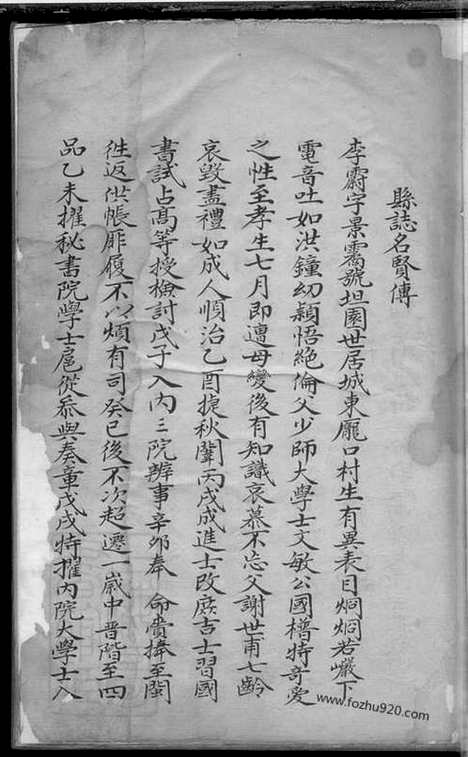 縣誌名賢傳
李霨字景霱號坦園世居城東龐口村生有異表目烱烱若巖下
電音吐如洪鐘幼穎悟絕倫父少師大學士文敏公國𣚴特奇愛
之性至孝生七月即遭母變後有知識哀慕不忘父謝世甫七齡
哀毀盡禮如成人順治乙酉捷秋闈丙戌成進士改庶吉士習國
書試占髙等授檢討戊子入內三院辨事辛卯奉 命賫捧至閩
徃返供帳屝履不以煩有司癸巳後不次超遷一歲中晋階至四
品乙未擢秘書院學士扈從叅與奏章戊戌特擢內院大學士入
www.fozhu920.com